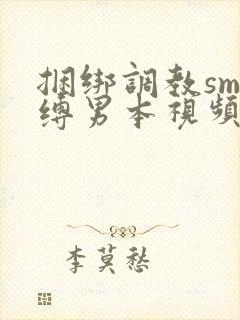 捆绑調教sm
缚男本視頻
李莫愁